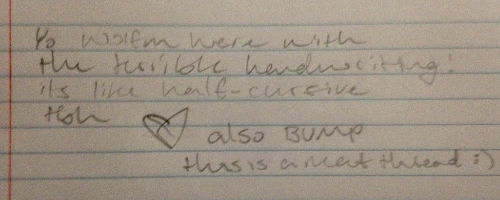 Yo Wolfm here with
the terrible handwriting!
its like half-cursive
tbh
also BUMP
this is a neat thread :)